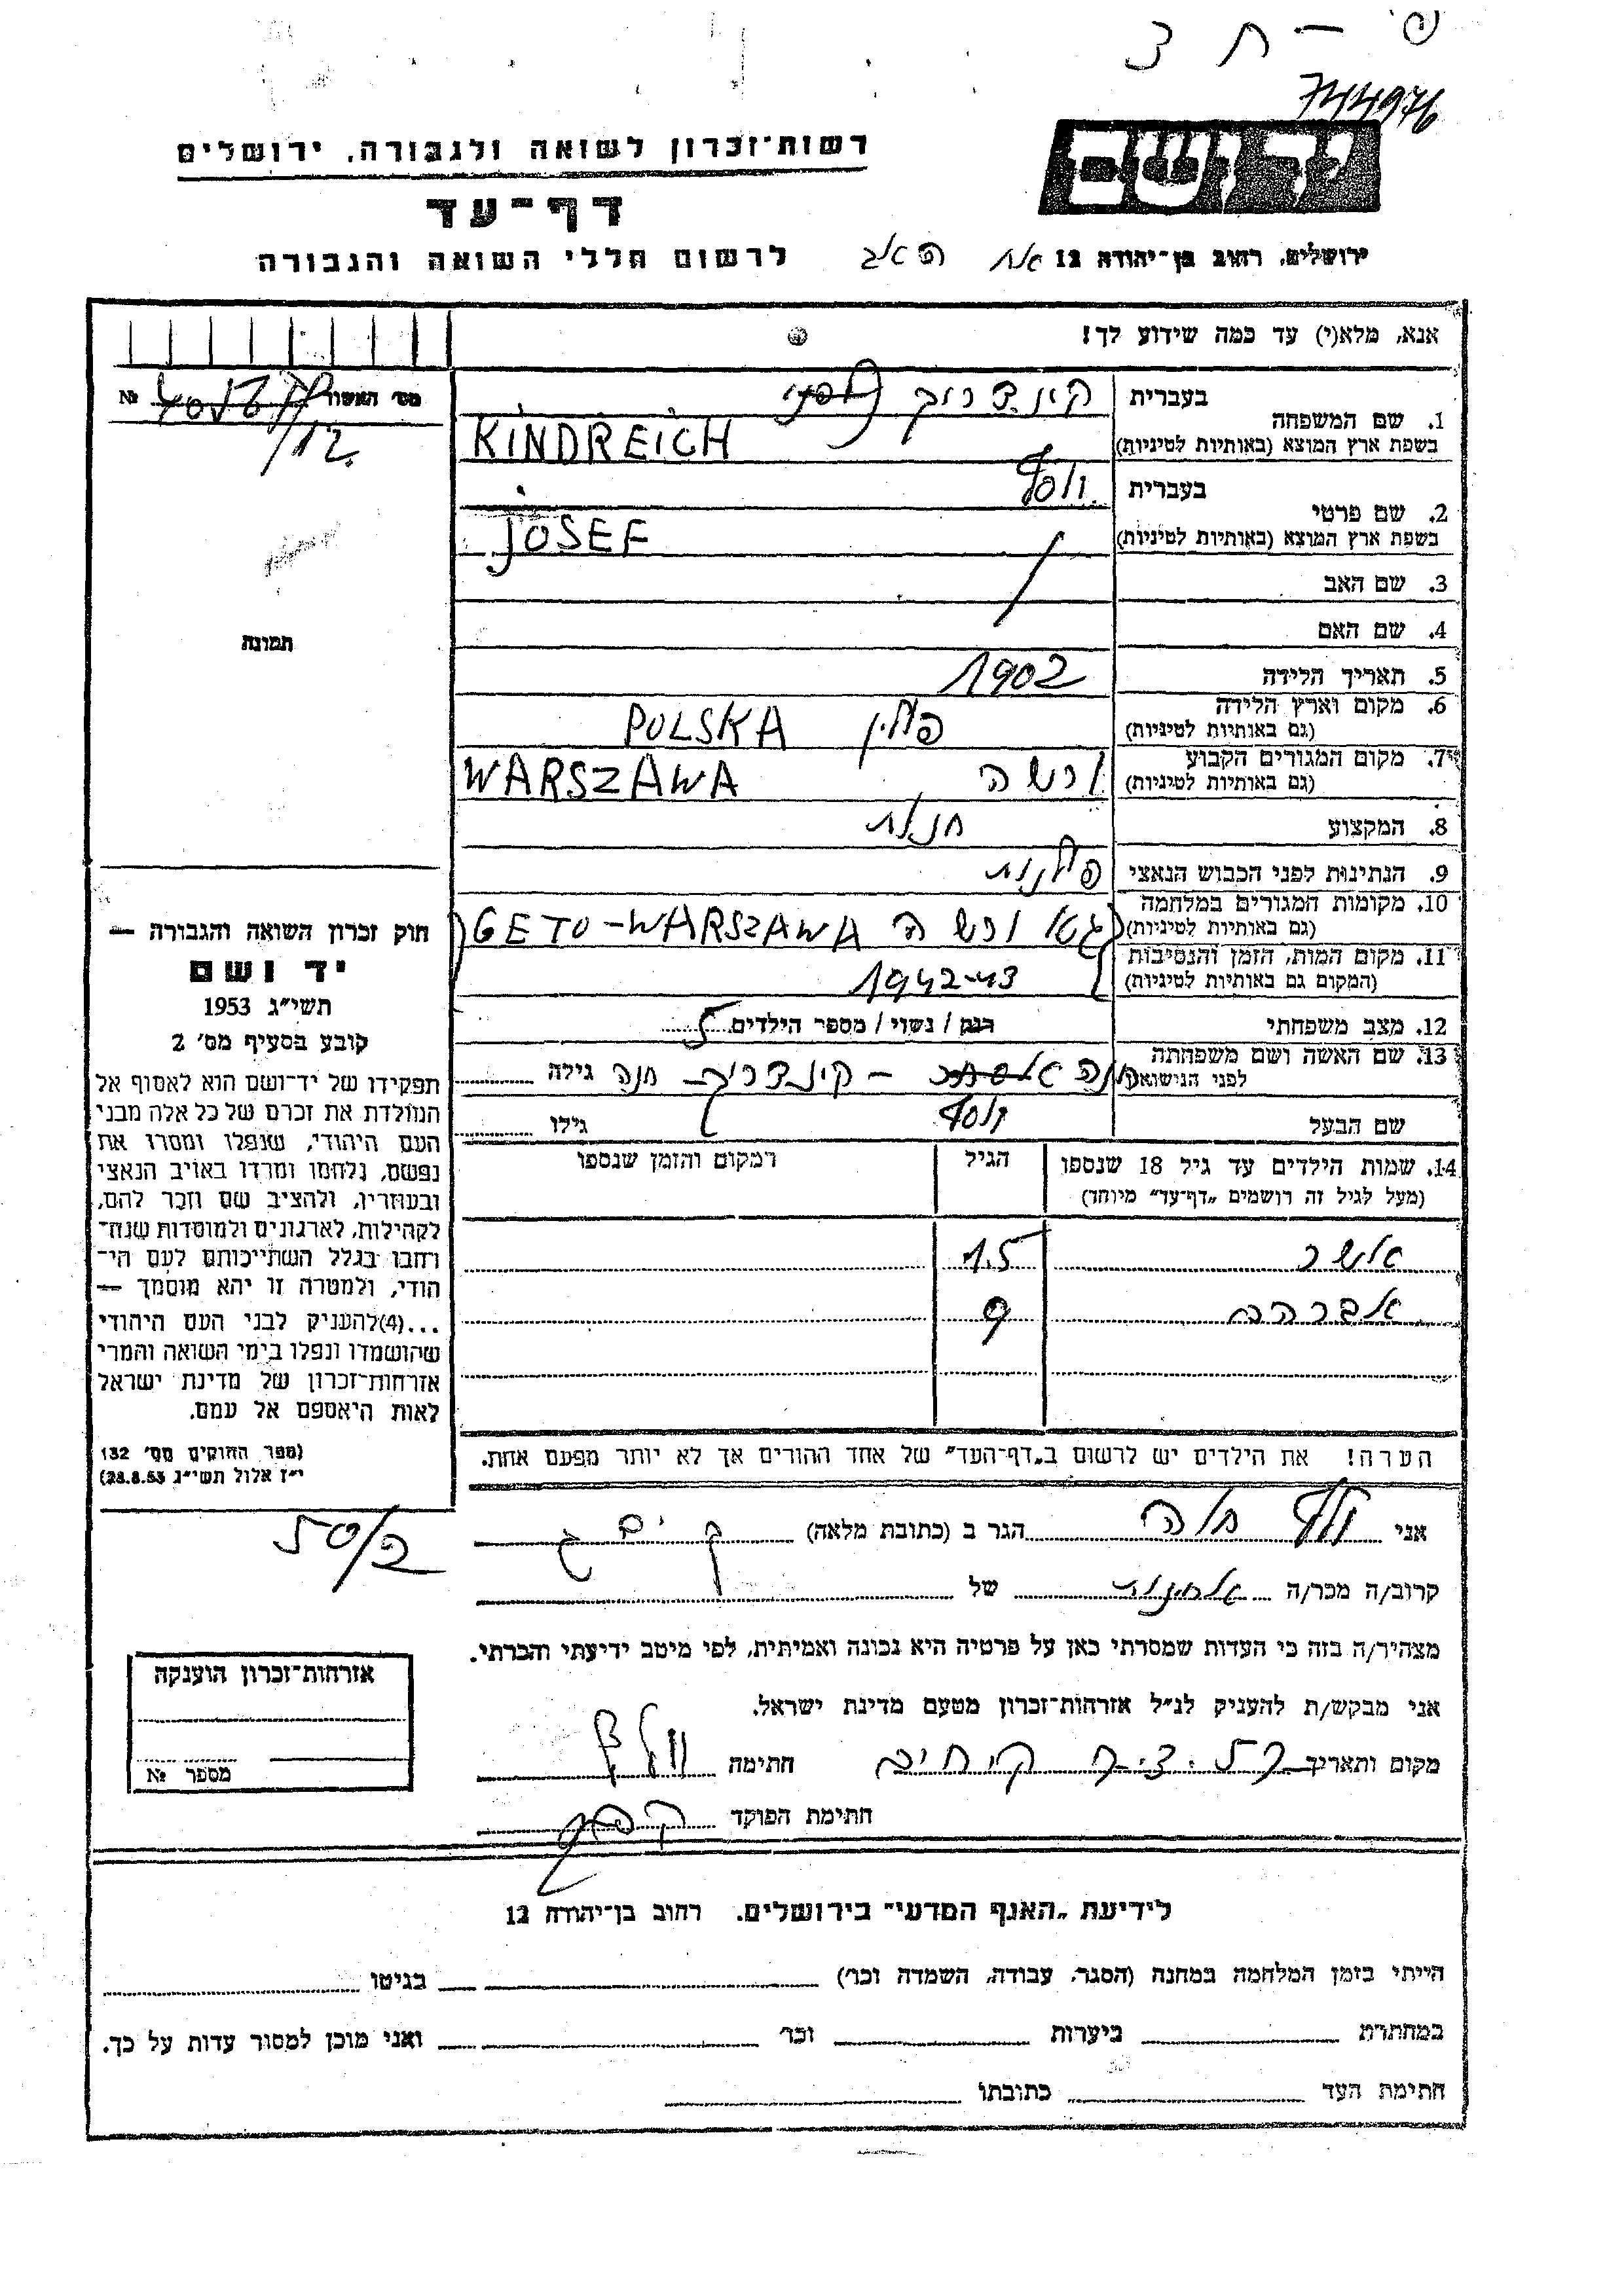 פ' – ת צ
744976
רשות־זכרון לשואה ולגבורה, ירושלים
יד ושם
דף־עד
לרשום חללי השואה והגבורה
ירושלים, רחוב בן־יהודה 12
אנא, מלא(י) עד כמה שידוע לך!
מס' האשור №
/12
תמונה
1. שם המשפחה
בעברית קינדריך
בשפת ארץ המוצא (באותיות לטיניות) KINDREICH
2. שם פרטי
בעברית יוסף
בשפת ארץ המוצא (באותיות לטיניות) JOSEF
3. שם האב
4. שם האם
5. תאריך הלידה 1902
6. מקום וארץ הלידה
(גם באותיות לטיניות) פולין POLSKA
7. מקום המגורים הקבוע
(גם באותיות לטיניות) ורשה WARSZAWA
8. המקצוע
9. הנתינות לפני הכבוש הנאצי פולנית
10. מקומות המגורים במלחמה
(גם באותיות לטיניות) גטו ורשה GETO-WARSZAWA
11. מקום המות, הזמן והנסיבות
(המקום גם באותיות לטיניות) 1942-43
12. מצב משפחתי רווק / נשוי / מספר הילדים 5
13. שם האשה ושם משפחתה
לפני הנישואין קינדריך חנה גילה
שם הבעל יוסף גילו
14. שמות הילדים עד גיל 18 שנספו הגיל המקום והזמן שנספו
(מעל לגיל זה רושמים „דף־עד” מיוחד)
אשר 15
אברהם 9
הערה! את הילדים יש לרשום ב„דף־העד” של אחד ההורים אך לא יותר מפעם אחת.
חוק זכרון השואה והגבורה —
יד ושם
תשי״ג 1953
קובע בסעיף מס' 2
תפקידו של יד־ושם הוא לאסוף אל
המולדת את זכרם של כל אלה מבני
העם היהודי, שנפלו ומסרו את
נפשם, נלחמו ומרדו באויב הנאצי
ובעוזריו, ולהציב שם וזכר להם,
לקהילות, לארגונים ולמוסדות שנח־
רחבו בגלל השתייכותם לעם הי־
הודי, ולמטרה זו יהא מוסמך —
...(4)להעניק לבני העם היהודי
שהושמדו ונפלו בימי השואה והמרי
אזרחות־זכרון של מדינת ישראל
לאות היאספם אל עמם.
(ספר החוקים מס' 132
י״ז אלול תשי״ג 28.8.53)
50/2
אני וולף חוה הגר ב (כתובת מלאה)
קרוב/ה מכר/ה של
מצהיר/ה בזה כי העדות שמסרתי כאן על פרטיה היא נכונה ואמיתית, לפי מיטב ידיעתי והכרתי.
אני מבקש/ת להעניק לנ״ל אזרחות־זכרון מטעם מדינת ישראל.
מקום ותאריך חתימה וולף
חתימת הפוקד
אזרחות־זכרון הוענקה
מספר №
לידיעת „האגף המדעי” בירושלים, רחוב בן־יהודה 12
הייתי בזמן המלחמה במחנה (הסגר, עבודה, השמדה וכו') בגיטו
במחתרת ביערות וכו' ואני מוכן למסור עדות על כך.
חתימת העד כתובתו